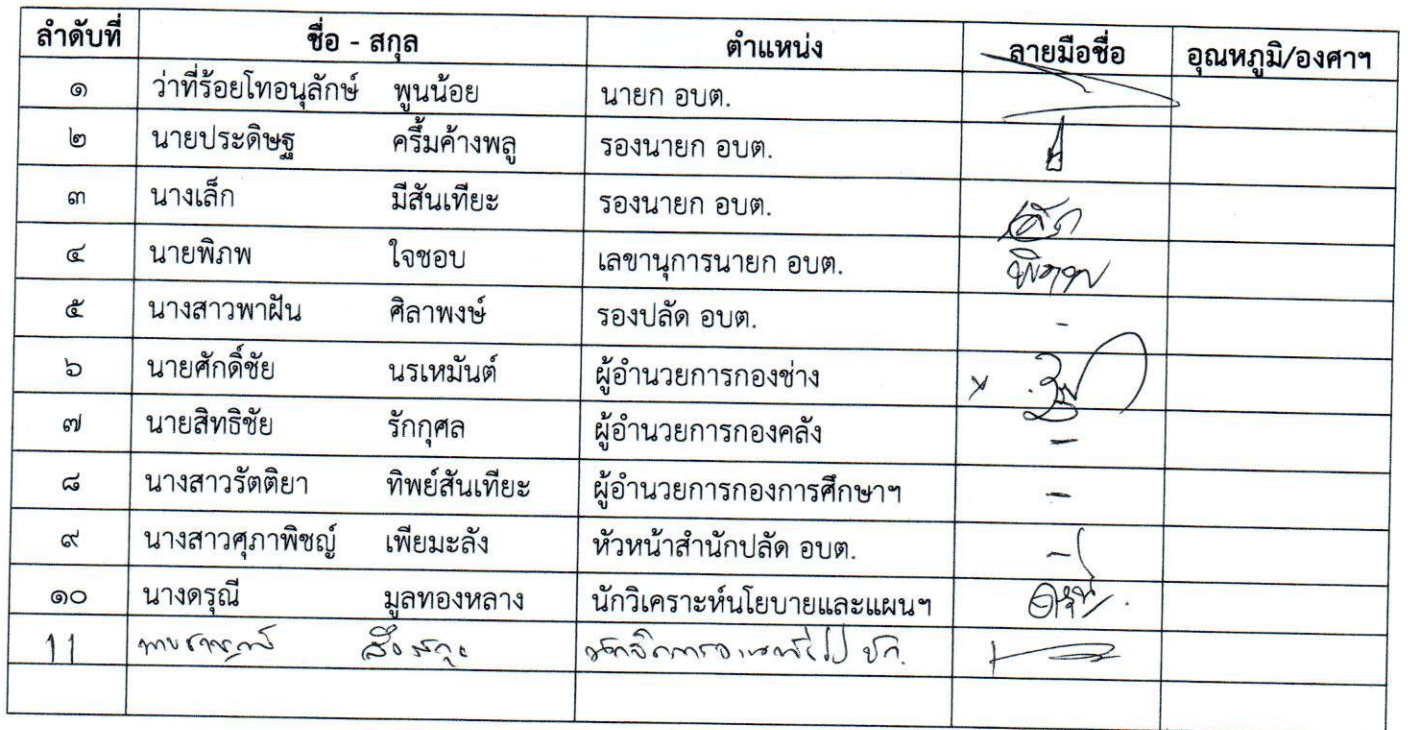 ลำดับที่ ชื่อ - สกุล ตำแหน่ง ลายมือชื่อ อุณหภูมิ/องศาฯ
๑ ว่าที่ร้อยโทอนุลักษ์ พูนน้อย นายก อบต.
๒ นายประดิษฐ ครึ้มค้างพลู รองนายก อบต.
๓ นางเล็ก มีสันเทียะ รองนายก อบต. เล็ก
๔ นายพิภพ ใจชอบ เลขานุการนายก อบต. พิภพ
๕ นางสาวพาฝัน ศิลาพงษ์ รองปลัด อบต. -
๖ นายศักดิ์ชัย นรเหมันต์ ผู้อำนวยการกองช่าง x
๗ นายสิทธิชัย รักกุศล ผู้อำนวยการกองคลัง -
๘ นางสาวรัตติยา ทิพย์สันเทียะ ผู้อำนวยการกองการศึกษาฯ -
๙ นางสาวศุภาพิชญ์ เพียมะลัง หัวหน้าสำนักปลัด อบต. -
๑๐ นางดรุณี มูลทองหลาง นักวิเคราะห์นโยบายและแผนฯ ดรุณี
11